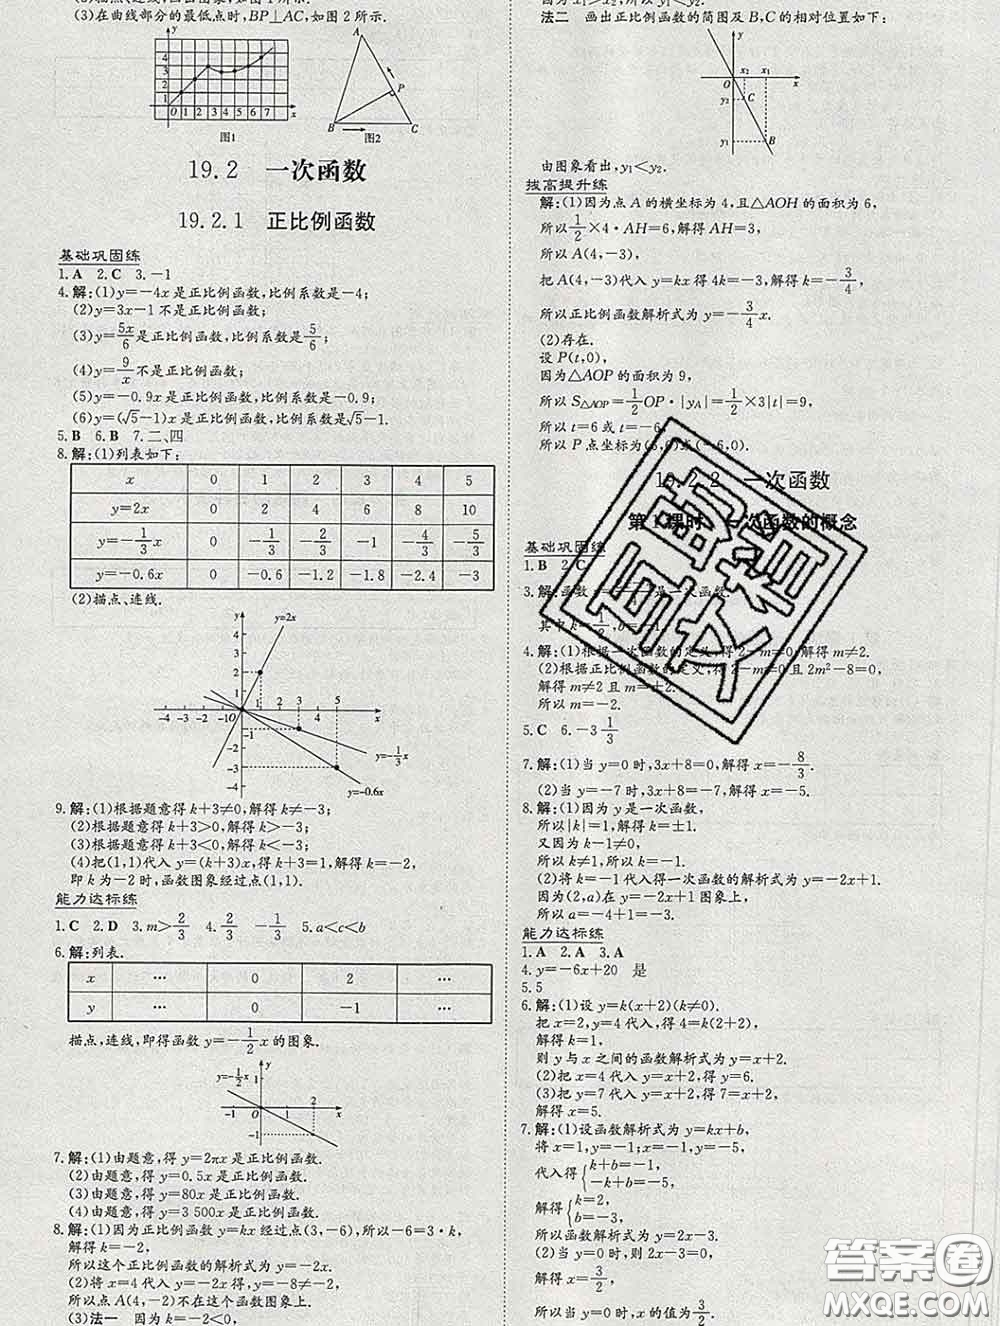 (3)在曲线部分的最低点时,BP⊥AC,如图2所示.
图1
图2
19.2 一次函数
19.2.1 正比例函数
基础巩固练
1.A 2.C 3.-1
4.解:(1)y=-4x是正比例函数,比例系数是-4;
(2)y=3x-1不是正比例函数;
(3)y=5x/6是正比例函数,比例系数是5/6;
(4)y=9/x不是正比例函数;
(5)y=-0.9x是正比例函数,比例系数是-0.9;
(6)y=(√5-1)x是正比例函数,比例系数是√5-1.
5.B 6.B 7.二、四
8.解:(1)列表如下:
x 0 1 2 3 4 5
y=2x 0 2 4 6 8 10
y=-1/3x 0 -1/3 -2/3 -1 -4/3 -5/3
y=-0.6x 0 -0.6 -1.2 -1.8 -2.4 -3
(2)描点、连线.
y=2x
y=-1/3x
y=-0.6x
9.解:(1)根据题意得k+3≠0,解得k≠-3;
(2)根据题意得k+3>0,解得k>-3;
(3)根据题意得k+3<0,解得k<-3;
(4)把(1,1)代入y=(k+3)x,得k+3=1,解得k=-2,
即k为-2时,函数图象经过点(1,1).
能力达标练
1.C 2.D 3.m>2/3 4.2/3 -1/3 5.a<c<b
6.解:列表.
x … 0 2 …
y … 0 -1 …
描点,连线,即得函数y=-1/2x的图象.
y=-1/2x
7.解:(1)由题意,得y=2πx是正比例函数.
(2)由题意,得y=0.5x是正比例函数.
(3)由题意,得y=80x是正比例函数.
(4)由题意,得y=3 500x是正比例函数.
8.解:(1)因为正比例函数y=kx经过点(3,-6),所以-6=3·k,
解得k=-2,
所以这个正比例函数的解析式为y=-2x.
(2)将x=4代入y=-2x得y=-8≠-2,
所以点A(4,-2)不在这个函数图象上.
(3)法一 因为k=-2<0,
因为x₁>x₂,所以y₁<y₂.
法二 画出正比例函数的简图及B,C的相对位置如下:
由图象看出,y₁<y₂.
拔高提升练
解:(1)因为点A的横坐标为4,且△AOH的面积为6,
所以1/2×4·AH=6,解得AH=3,
所以A(4,-3),
把A(4,-3)代入y=kx得4k=-3,解得k=-3/4,
所以正比例函数解析式为y=-3/4x.
(2)存在.
设P(t,0),
因为△AOP的面积为9,
所以S△AOP=1/2OP·|yA|=1/2×3|t|=9,
所以t=6或t=-6,
所以P点坐标为(6,0)或(-6,0).
19.2.2 一次函数
第1课时 一次函数的概念
基础巩固练
1.B 2.C
其中k=1/2,b=-1.
4.解:(1)根据一次函数的定义,得2-m≠0,解得m≠2.
(2)根据正比例函数的定义,得2-m≠0且2m²-8=0,
解得m≠2且m=±2.
所以m=-2.
5.C 6.-3 1/3
7.解:(1)当y=0时,3x+8=0,解得x=-8/3.
(2)当y=-7时,3x+8=-7,解得x=-5.
8.解:(1)因为y是一次函数,
所以|k|=1,解得k=±1.
又因为k-1≠0,
所以k≠1.所以k=-1.
(2)将k=-1代入得一次函数的解析式为y=-2x+1.
因为(2,a)在y=-2x+1图象上,
所以a=-4+1=-3.
能力达标练
1.A 2.A 3.A
4.y=-6x+20 是
5.5
6.解:(1)设y=k(x+2)(k≠0).
把x=2,y=4代入,得4=k(2+2),
解得k=1,
则y与x之间的函数解析式为y=x+2.
(2)把x=4代入y=x+2,得y=6.
(3)把y=7代入y=x+2,得7=x+2,
解得x=5.
7.解:(1)设函数解析式为y=kx+b,
将x=1,y=-1;x=-1,y=-5,
代入得{k+b=-1,-k+b=-5,
解得{k=2,b=-3,
所以函数解析式为y=2x-3.
(2)当y=0时,则2x-3=0,
解得x=3/2,
所以当y=0时,x的值为3/2.
百分精答
答案圈
MXQE.COM